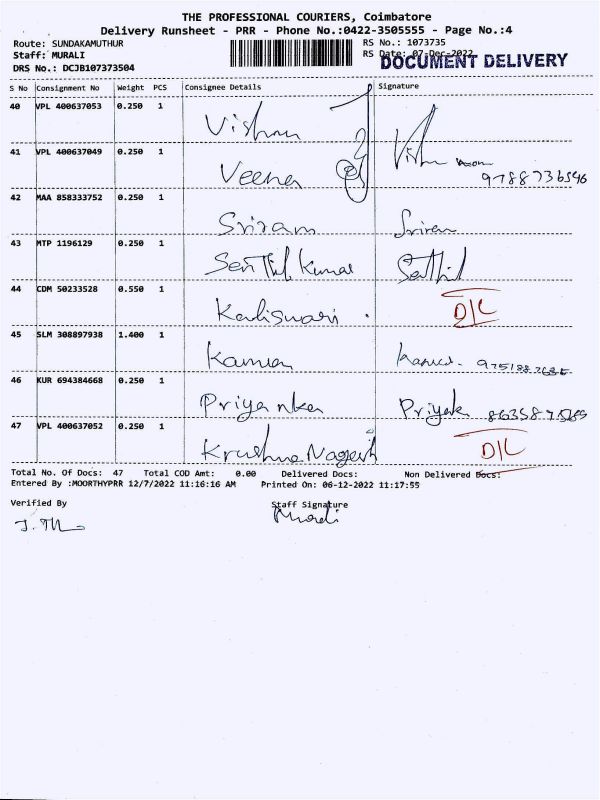 THE PROFESSIONAL COURIERS, Coimbatore
Delivery Runsheet - PRR - Phone No.:0422-3505555 - Page No.:4
Route: SUNDAKAMUTHUR
RS No.: 1073735
Staff: MURALI
RS Date: 07-Dec-2022
DOCUMENT DELIVERY
DRS No.: DCJB107373504
S No Consignment No Weight PCS Consignee Details Signature
40 VPL 400637053 0.250 1 Vishnu
41 VPL 400637049 0.250 1 Veena 9788736546
42 MAA 858333752 0.250 1 Sriram Sriram
43 MTP 1196129 0.250 1 Senthil Kumar Senthil
44 CDM 50233528 0.550 1 Kaliswari . D/L
45 SLM 308897938 1.400 1
46 KUR 694384668 0.250 1 Priyanka
47 VPL 400637052 0.250 1 Krushna Nagesh D/L
Total No. Of Docs: 47 Total COD Amt: 0.00 Delivered Docs: Non Delivered Docs:
Entered By :MOORTHYPRR 12/7/2022 11:16:16 AM Printed On: 06-12-2022 11:17:55
Verified By Staff Signature
Murali